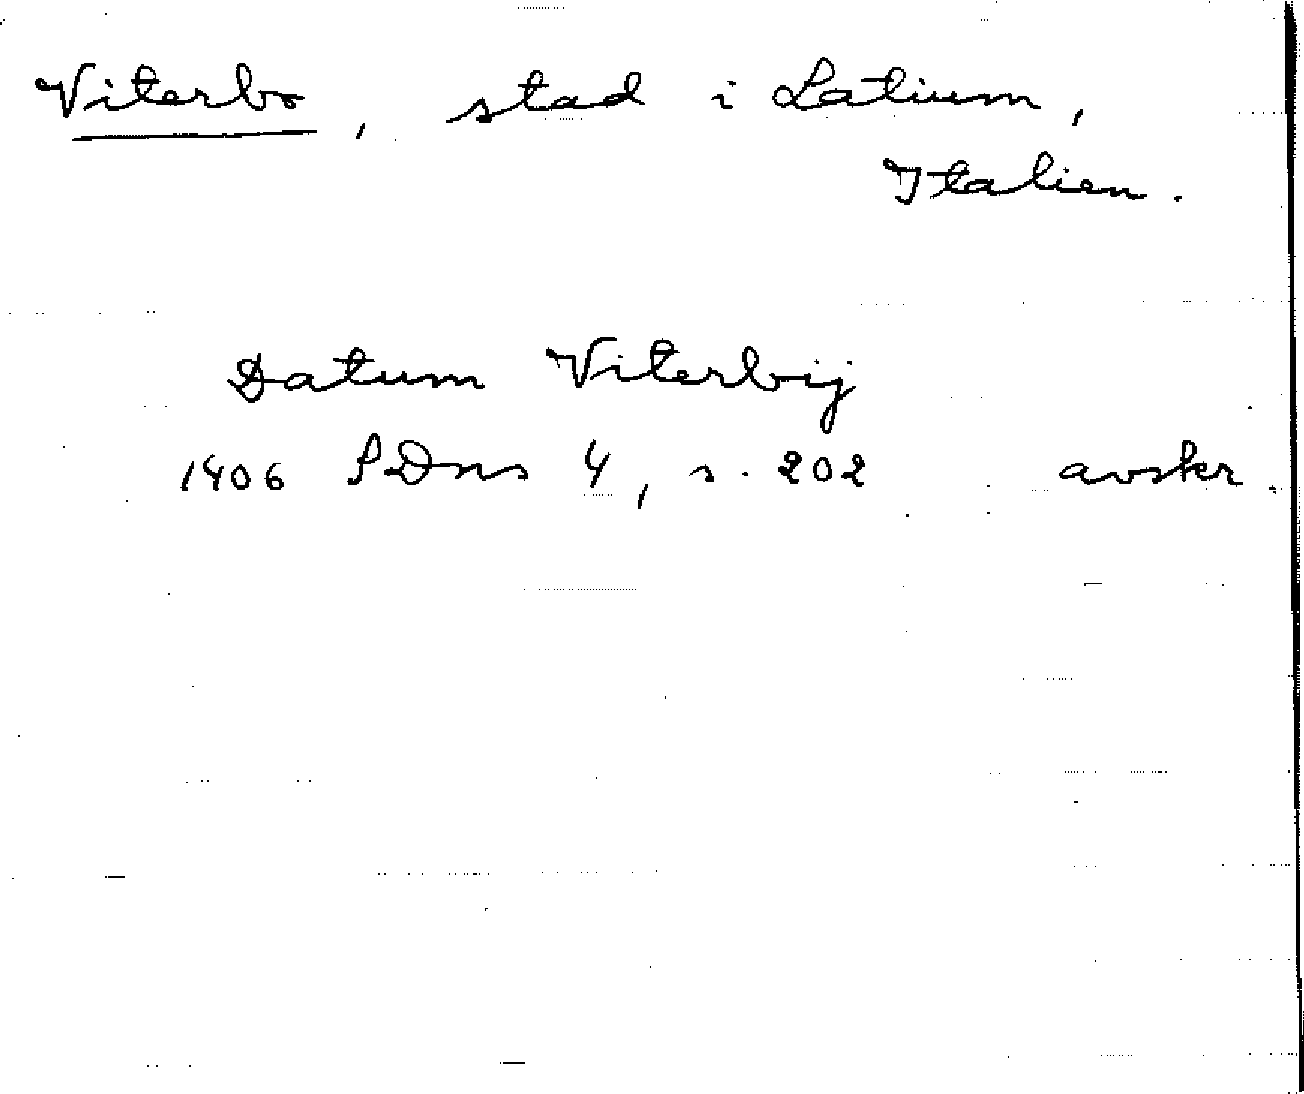 Viterbo, stad i Latium,
Italien.
Datum Viterbij
1406 SDns 4, s. 202 avskr.